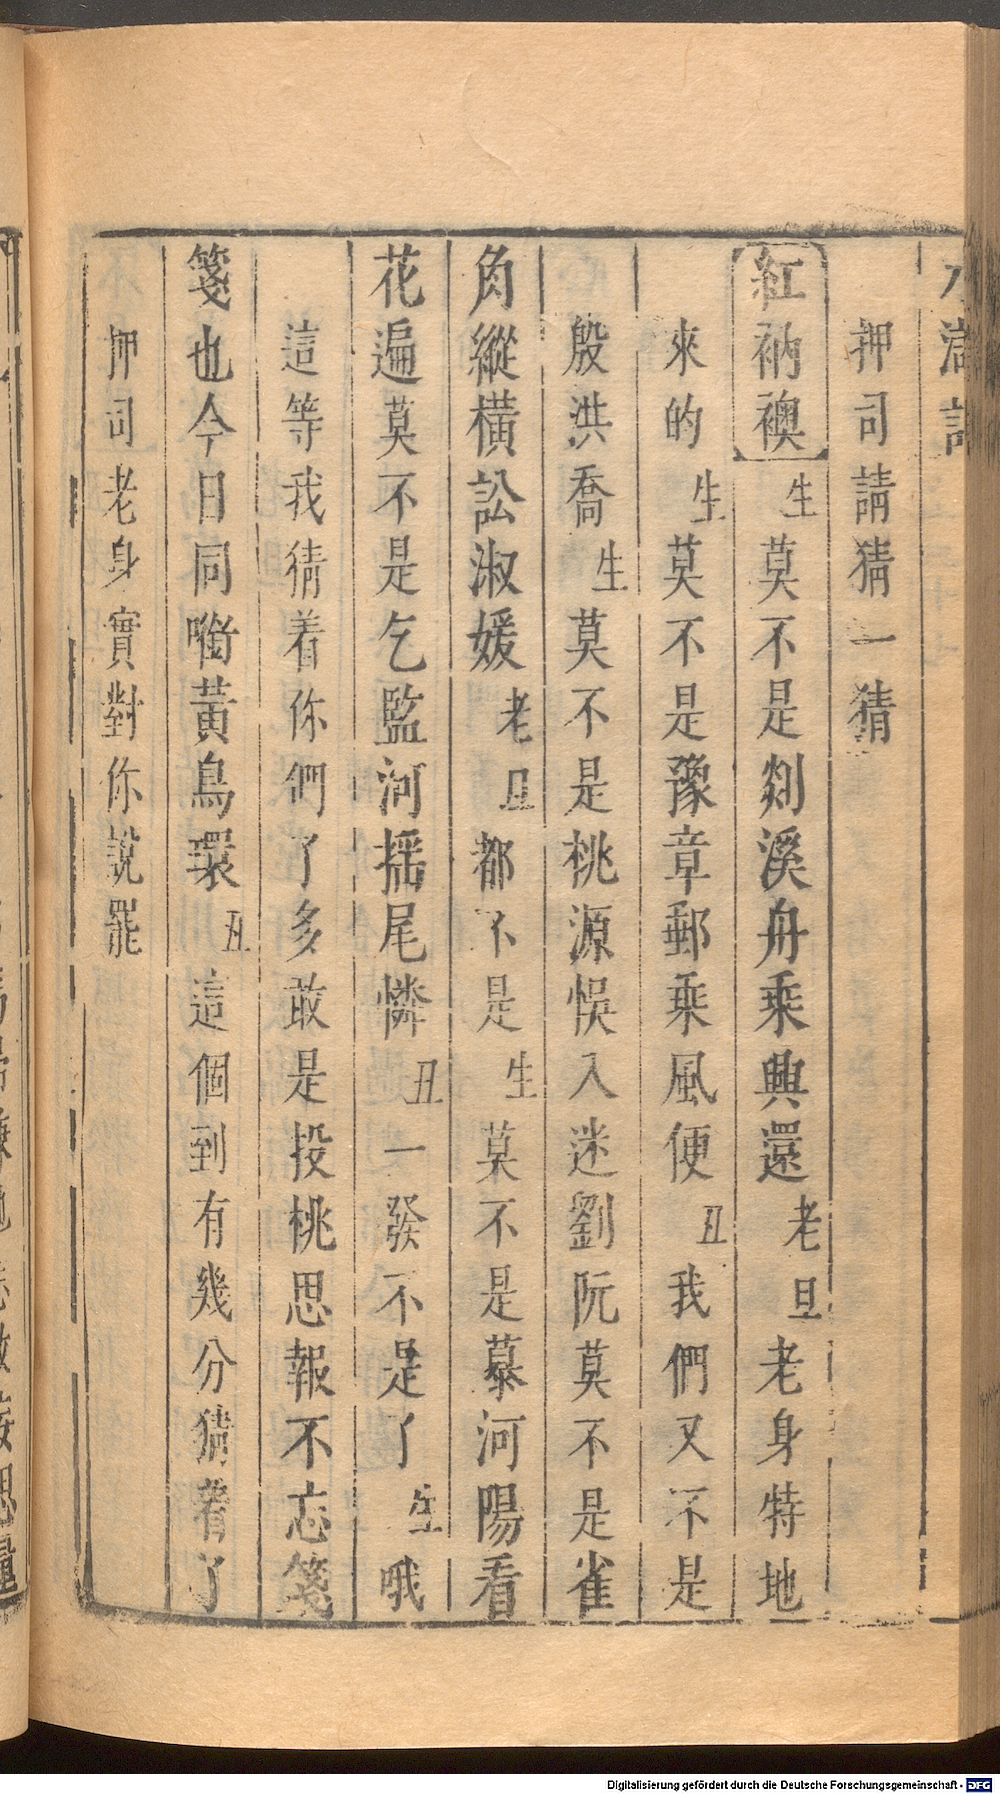 水滸記
押司請猜一猜
紅衲襖 生 莫不是剡溪舟乘興還 老旦 老身特地
來的 生 莫不是豫章郵乘風便 丑 我們又不是
殷洪喬 生 莫不是桃源悞入迷劉阮莫不是雀
角縱橫訟淑媛 老旦 都不是 生 莫不是慕河陽看
花遍莫不是乞監河揺尾憐 丑 一發不是了 生 哦
這等我猜着你們了多敢是投桃思報不忘箋
箋也今日同啣黃鳥環 丑 這個到有幾分猜着了
押司老身實對你說罷
Digitalisierung gefördert durch die Deutsche Forschungsgemeinschaft - DFG